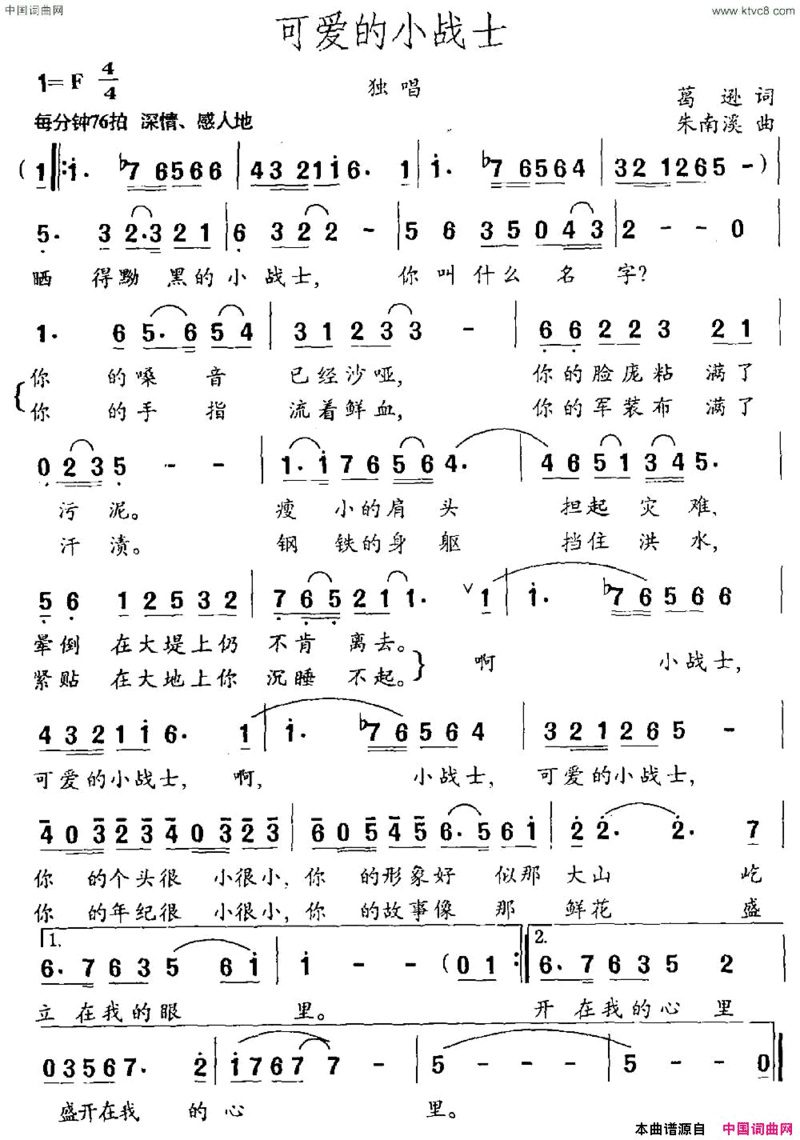 中国词曲网
www.ktvc8.com
可爱的小战士
1=F 4/4
独唱
葛逊词
每分钟76拍 深情、感人地
朱南溪曲
(1 1. b7 6566 4 32116. 1 1. b7 6564 32 1265 -)
5. 3 2.321 6 322 - 5 6 35043 2 - - 0
晒 得黝 黑的小战士, 你叫什么名字?
1. 6 5.654 31233 - 66223 21
你 的嗓 音 已经沙哑, 你的脸庞粘 满了
你 的手 指 流着鲜血, 你的军装布 满了
0235 - - 1.1765644. 4651345.
污泥。 瘦小的肩头 担起灾难,
汗渍。 钢铁的身躯 挡住洪水,
56 12532 765211. ∨1 1. b76566
晕倒 在大堤上仍 不肯 离去。 啊 小战士,
紧贴 在大地上你 沉睡 不起。
432116. 1 1. b76564 321265 -
可爱的小战士, 啊, 小战士, 可爱的小战士,
403234032 3 6054565.561 22. 2. 7
你 的个头很 小很小,你 的形象好 似那 大山 屹
你 的年纪很 小很小,你 的故事像 那 鲜花 盛
1. 2.
6.7635 61 1 - - (01 6.7635 2
立在我的眼 里。 开在我的心 里
03567. 2 17677 - 5 - - - 5 - - 0
盛开在我 的心 里。
本曲谱源自 中国词曲网